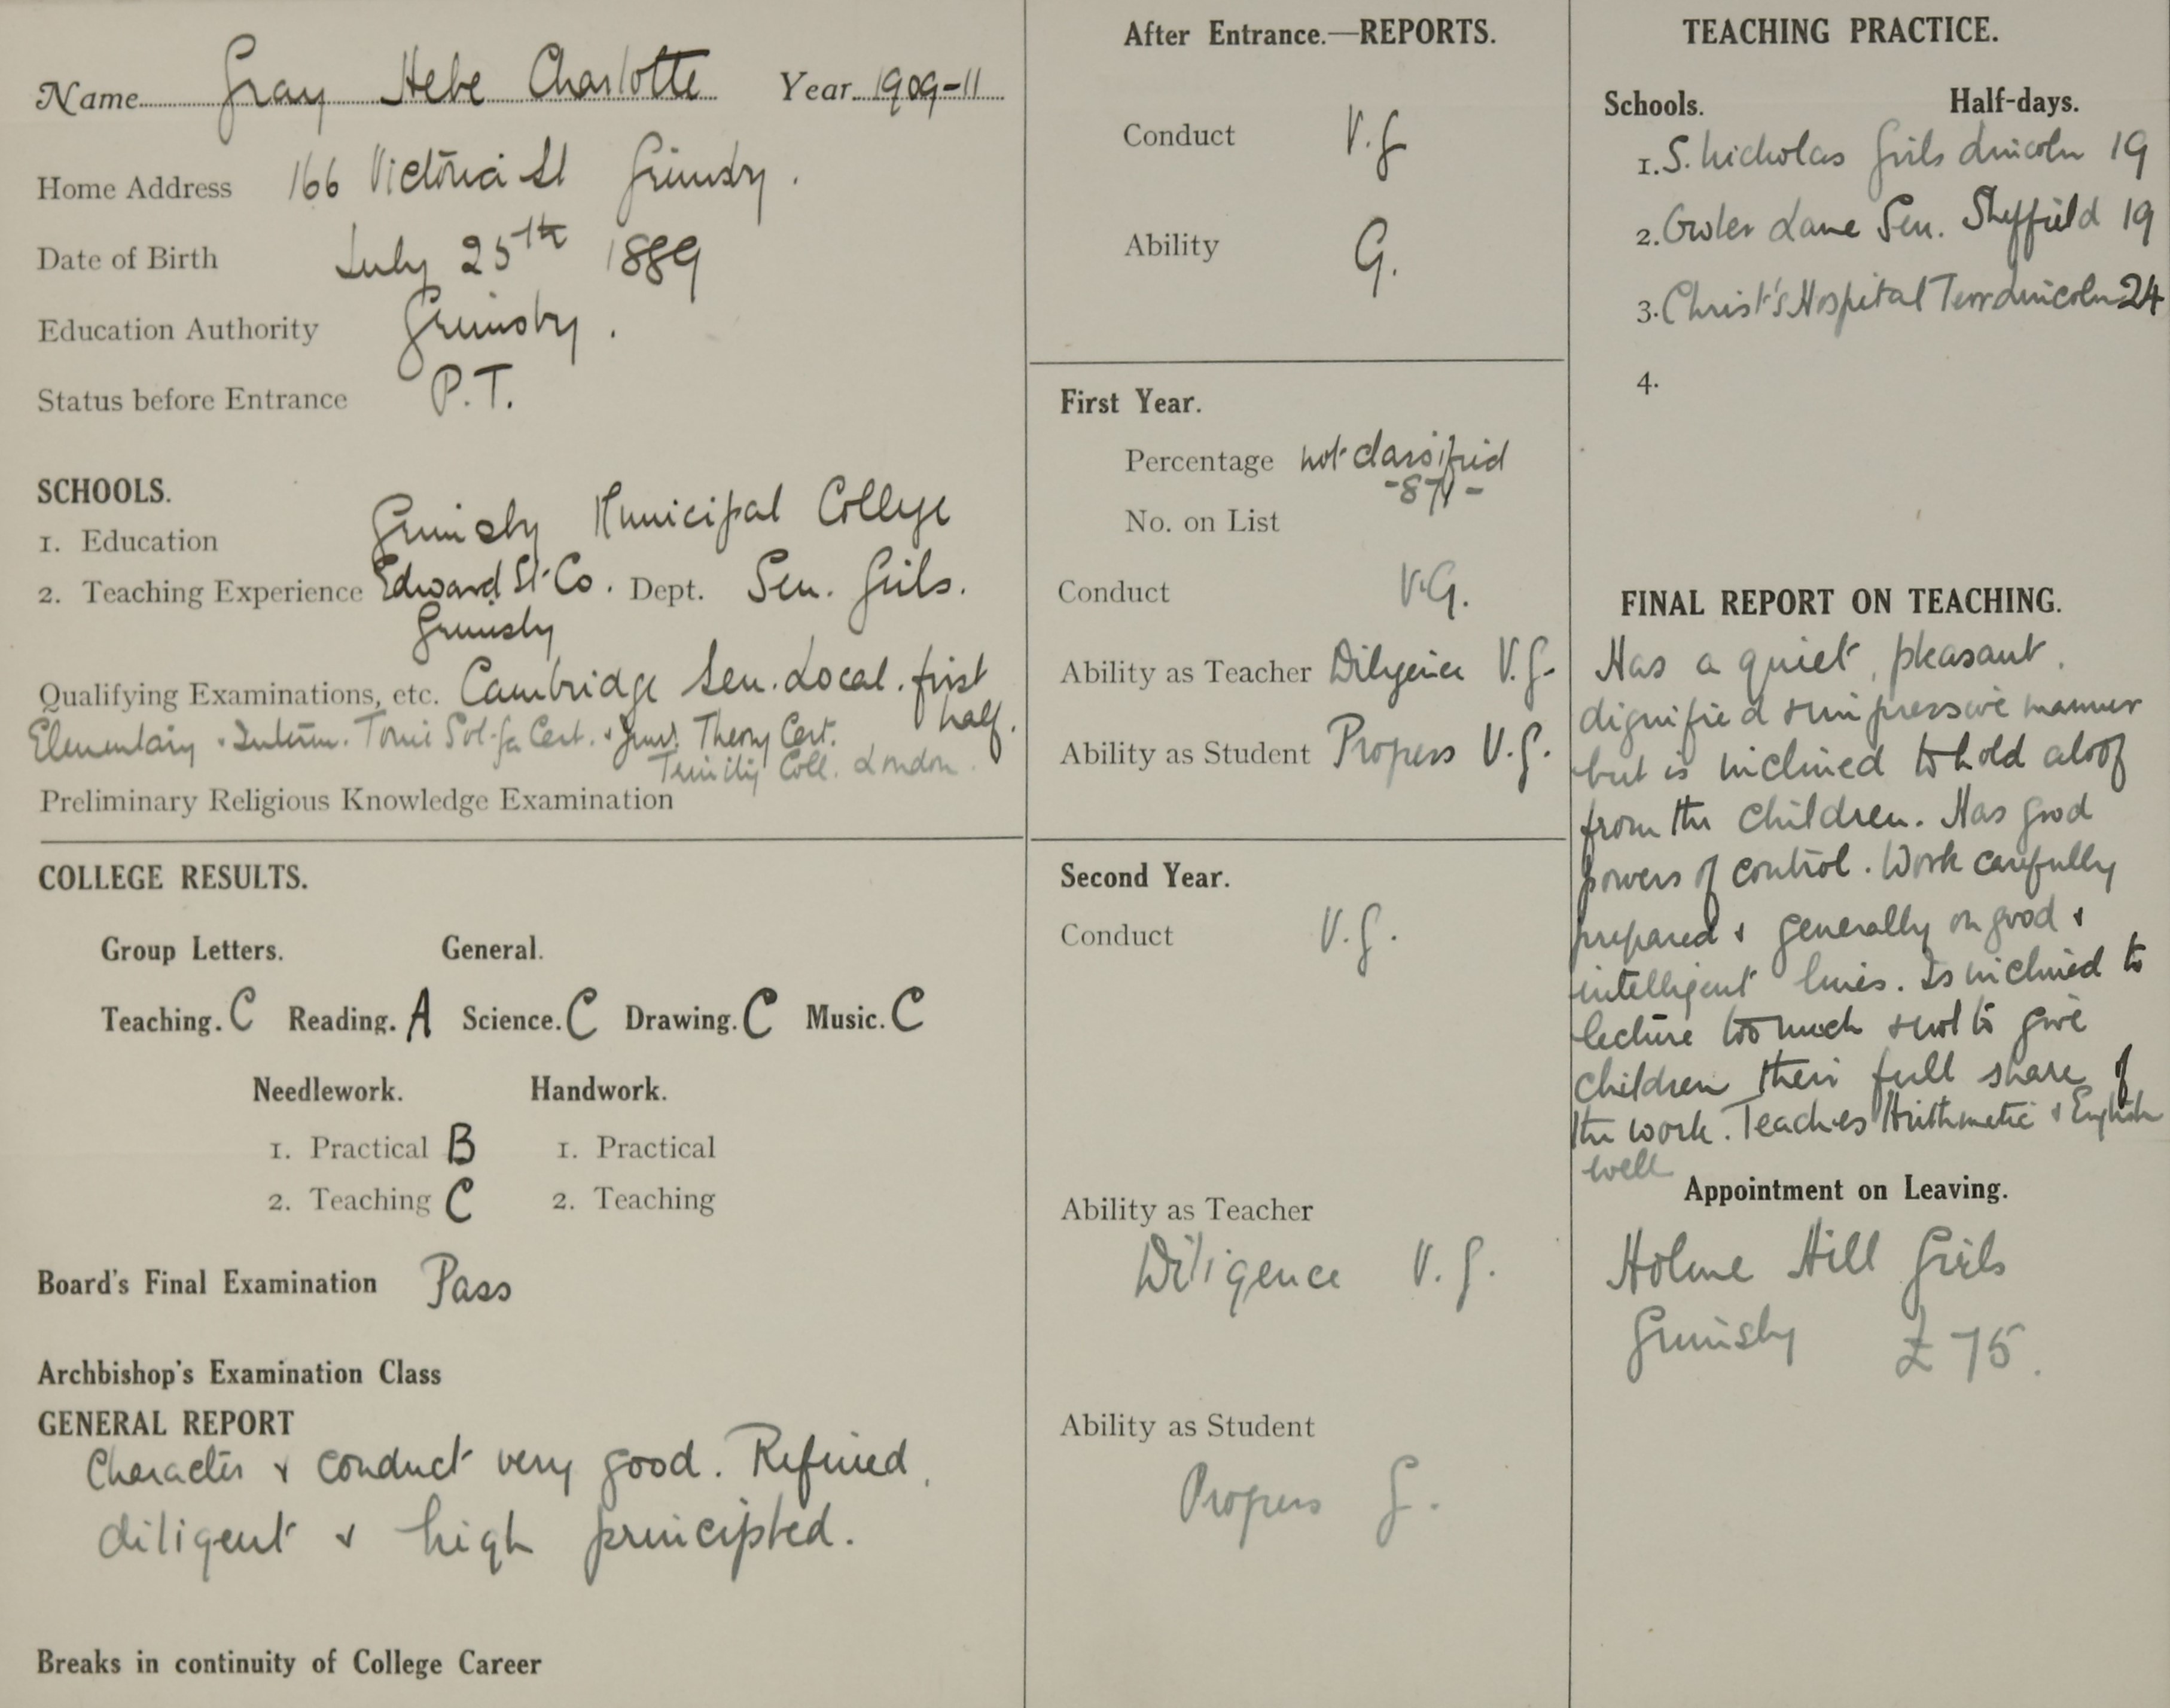 Name Gray Hebe Charlotte Year 1909-11
Home Address 166 Victoria St Grimsby.
Date of Birth July 25th 1889
Education Authority Grimsby.
Status before Entrance P.T.
SCHOOLS.
1. Education Grimsby Municipal College
2. Teaching Experience Edward St. Co. Dept. Sen. Girls.
Grimsby
Qualifying Examinations, etc. Cambridge Sen. Local. first
half.
Elementary & Interm. Tonic Sol-fa Cert. & Theory Cert.
Trinity Coll. London.
Preliminary Religious Knowledge Examination
COLLEGE RESULTS.
Group Letters. General.
Teaching. C Reading. A Science. C Drawing. C Music. C
Needlework. Handwork.
1. Practical B 1. Practical
2. Teaching C 2. Teaching
Board's Final Examination Pass
Archbishop's Examination Class
GENERAL REPORT
Character & conduct very good. Refined,
diligent & high principled.
Breaks in continuity of College Career
After Entrance.—REPORTS.
Conduct V.G
Ability G.
First Year.
Percentage not classified
-871-
No. on List
Conduct V.G.
Ability as Teacher Diligence V.G.
Ability as Student Progress V.G.
Second Year.
Conduct V.G.
Ability as Teacher
Diligence V.G.
Ability as Student
Progress G.
TEACHING PRACTICE.
Schools. Half-days.
1. S. Nicholas Girls Lincoln 19
2. Owler Lane Sen. Sheffield 19
3. Christ's Hospital Terr Lincoln 24
4.
FINAL REPORT ON TEACHING.
Has a quiet, pleasant,
dignified & impressive manner
but is inclined to hold aloof
from the children. Has good
powers of control. Work carefully
prepared & generally on good &
intelligent lines. Is inclined to
lecture too much & not to give
children their full share of
the work. Teaches Arithmetic & English
well
Appointment on Leaving.
Holme Hill Girls
Grimsby £75.